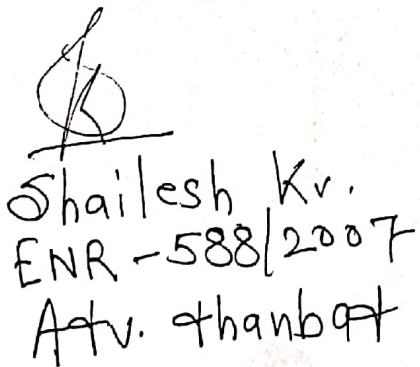 Shailesh Kr.
ENR - 588/2007
Adv. dhanbad